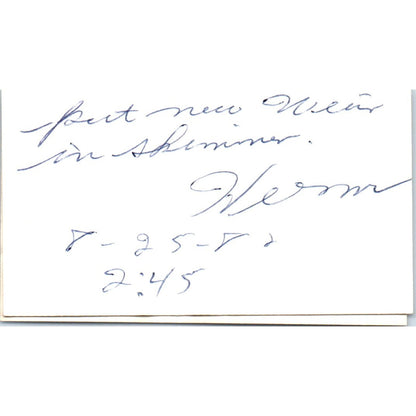 put new Weir
in skimmer.
Vernor
8-25-82
2:45